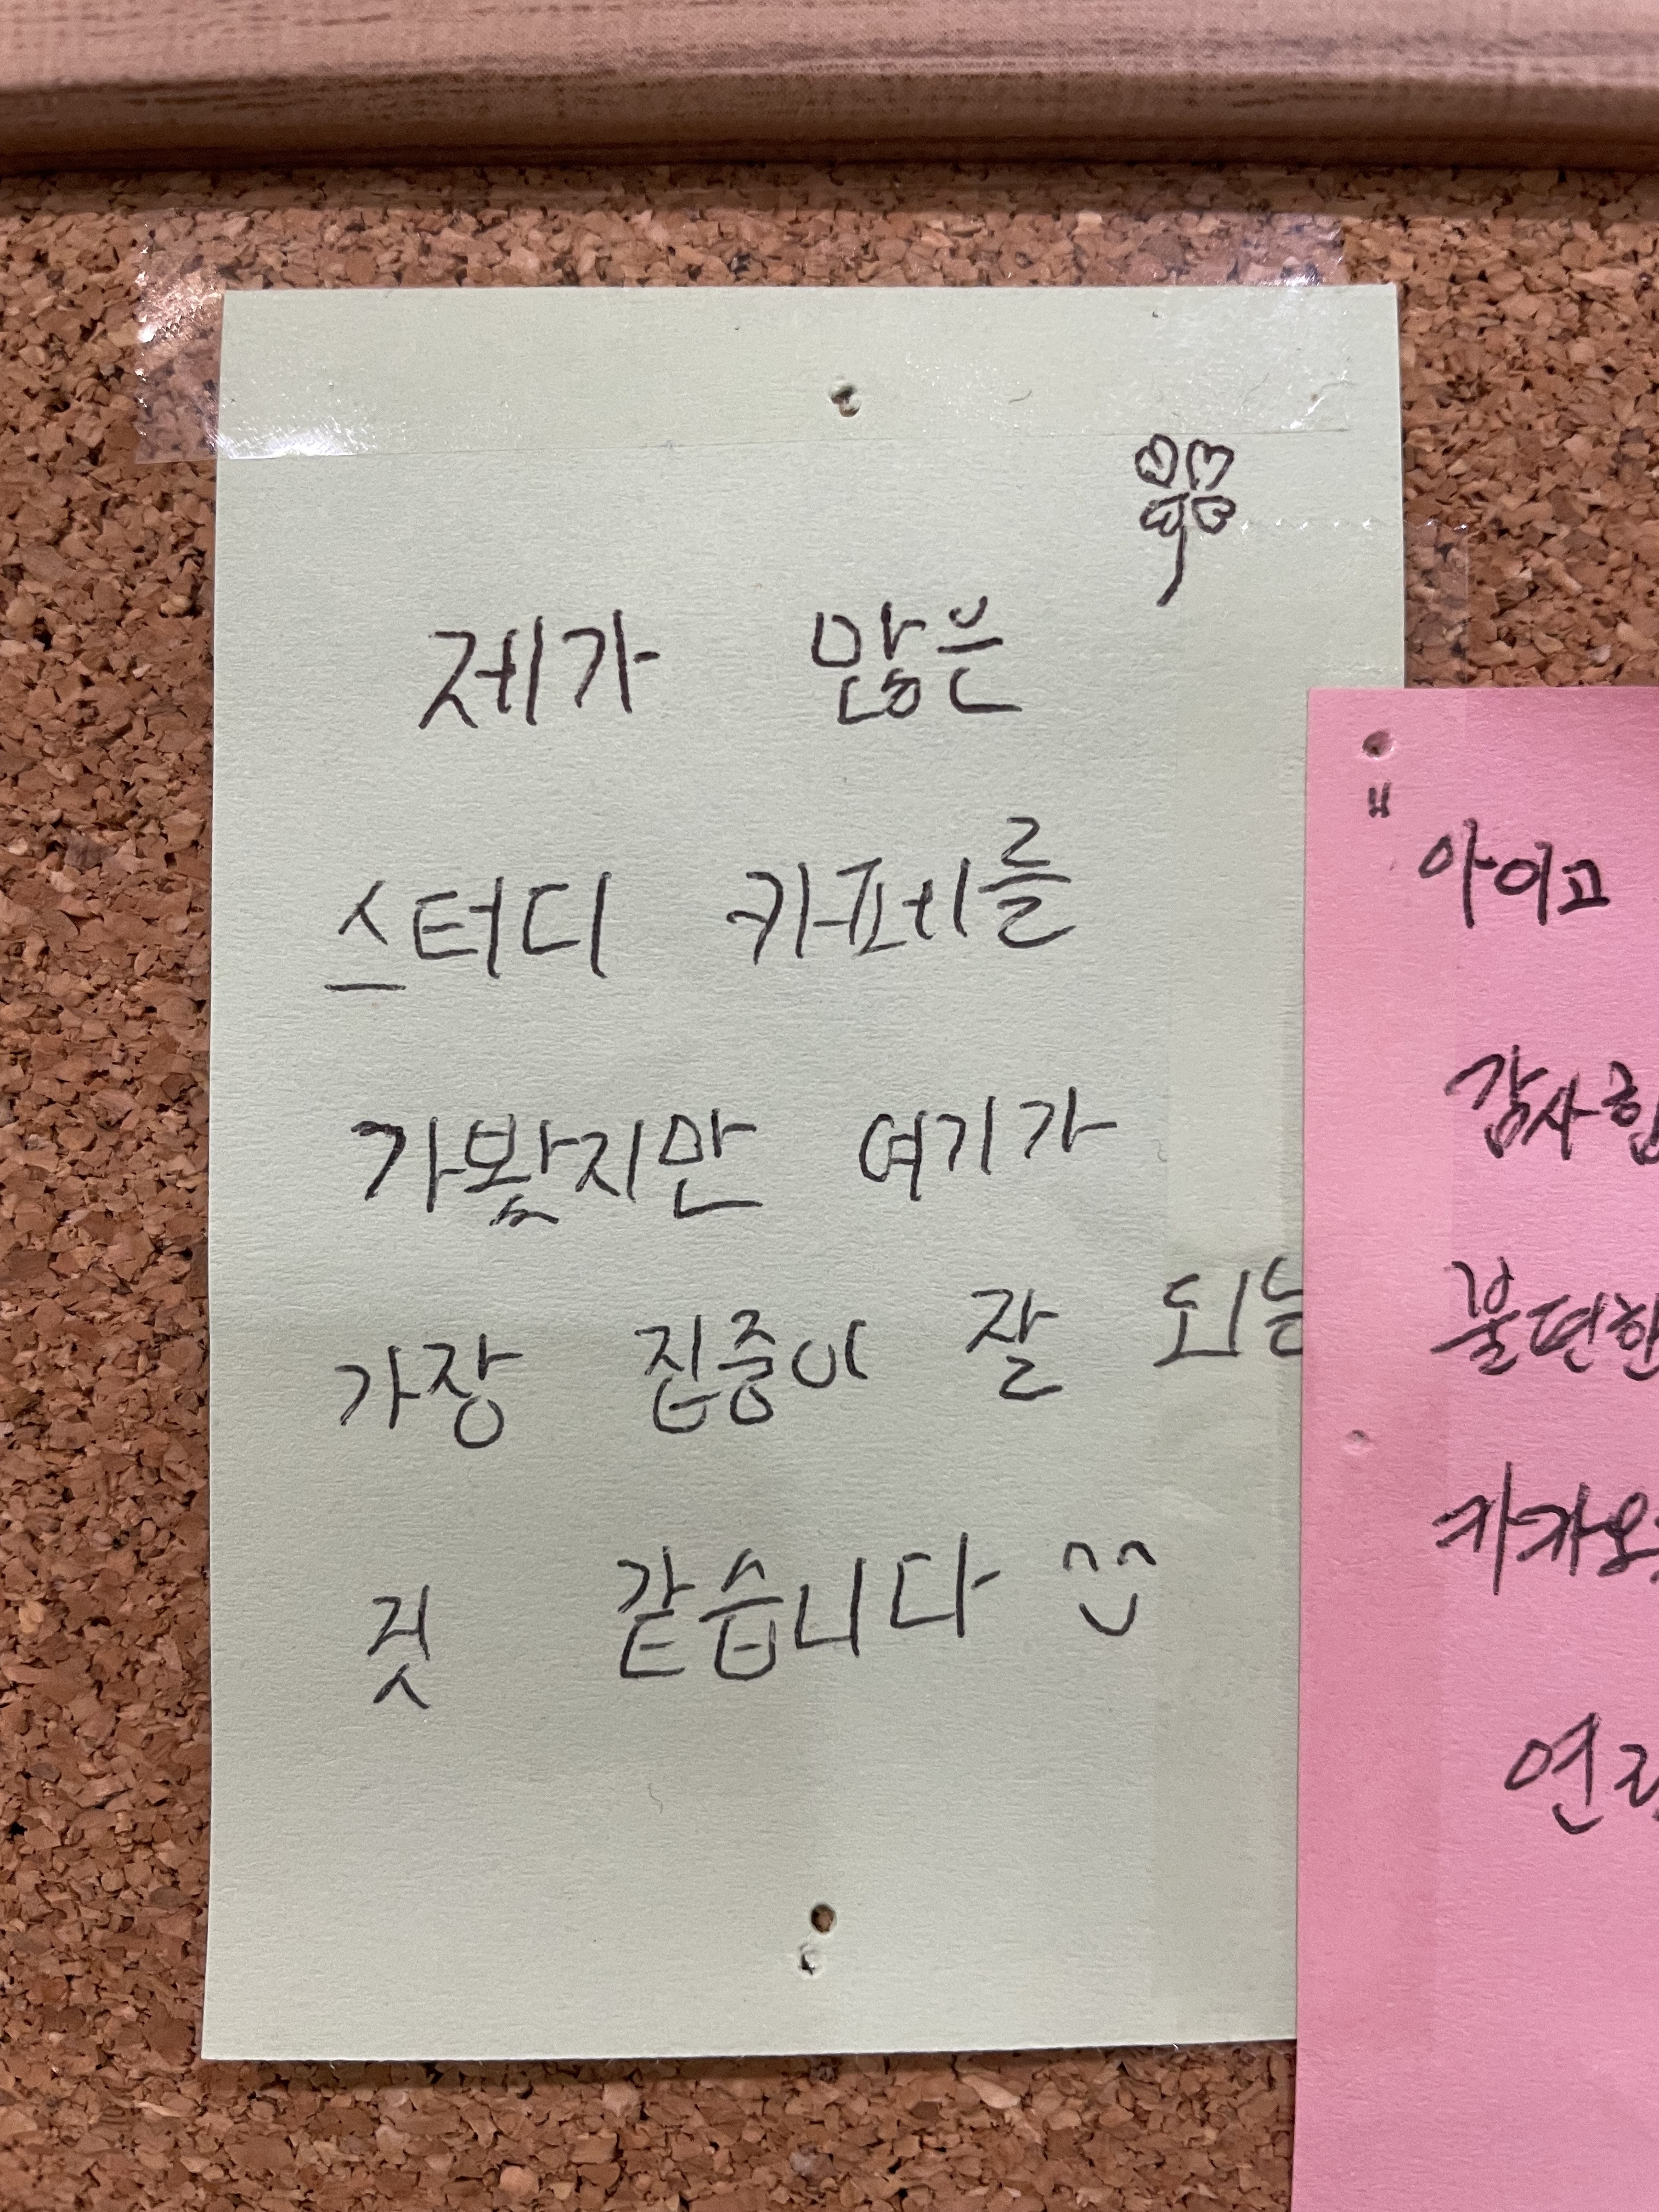 제가 많은
스터디 카페를
가봤지만 여기가
가장 집중이 잘 되는
것 같습니다
아이고
감사합
불편한
카카오
연락